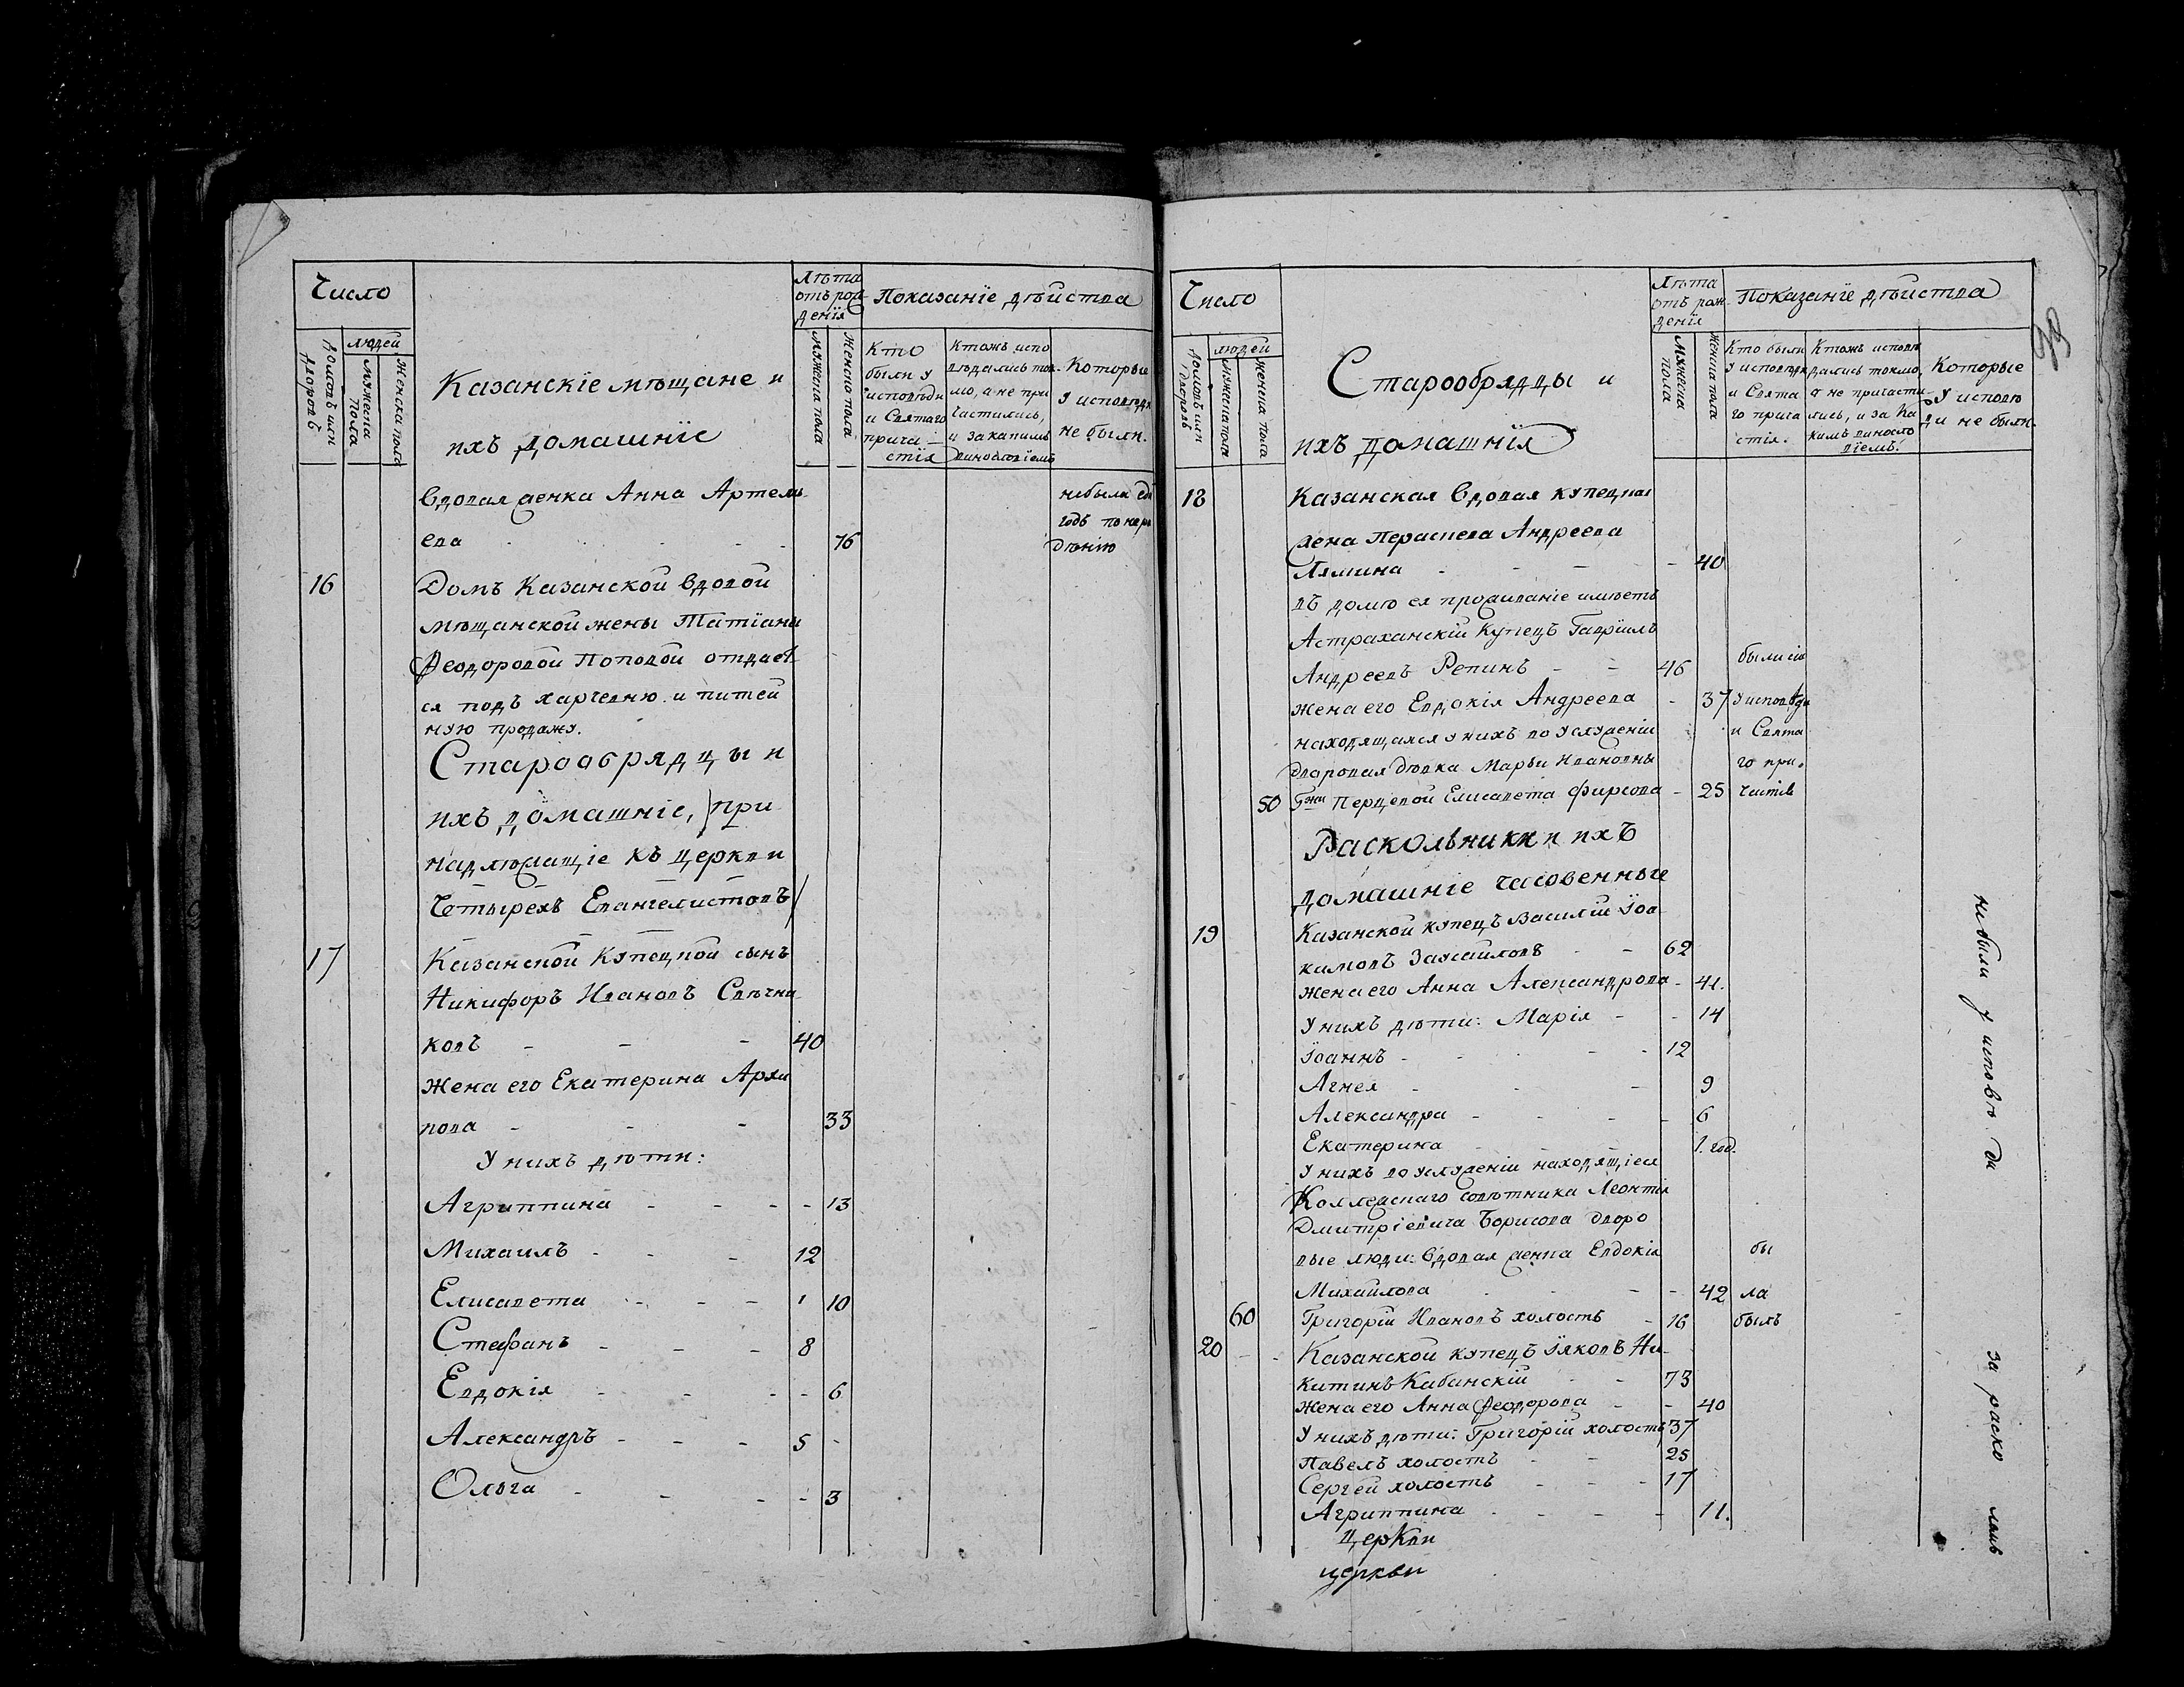 Число
Лѣта
отъ рож
денїя
Показанїе дѣйства
Домовъ или
дворовъ
людей
Мужеска
пола
Женска пола
Казанскїе мѣщане и
ихъ домашнїе
Мужеска пола
Женско пола
Кто
были у
исповѣди
и Святаго
прича-
стїя
Ктожъ испо
вѣдались ток-
мо, а не при
частились,
и за какимъ
винословїемъ
Которые
у исповѣди
не были.
Вдовая женка Анна Артемь-
ева 76
небыла сей
годъ по нера
дѣнїю
16 Домъ Казанской вдовой
мѣщанской жены Татїаны
Феодоровой Поповой отдает
ся подъ харчевню и питей
ную продажу.
Старообрядцы и
ихъ домашнїе, (при
надлѣжащїе къ церкви
Четырехъ Евангелистовъ)
17 Казанской Купецкой сынъ
Никифоръ Ивановъ Свѣчни
ковъ - - - 40
Жена его Екатерина Архи
пова - - - 33
У нихъ дѣти:
Агриппина - - - - 13
Михаилъ - - - 12
Елисавета - - - 10
Стефанъ - - - 8
Евдокїя - - - - 6
Александръ - - - 5 -
Ольга - - - - 3
Число
Лѣта
отъ рож
денїя
Показанїе дѣйства
39
Домовъ или
дворовъ
людей
Мужеска пола
Женска пола
Старообрядцы и
ихъ домашнїя
Мужеска
пола
Женска пола
Кто были
у исповѣди
и Свята
го прича
стїя.
Ктожъ исповѣ
дались токмо,
а не причасти-
лись, и за ка
кимъ виносло
вїемъ.
Которые
у исповѣ
ди не были.
18 Казанская вдовая купецкая
жена Параскева Андреева
Лямина - - - - 40
въ домѣ ея проживанїе имѣетъ
Астраханскїй Купецъ Гаврїилъ
Андреевъ Репинъ - - 46
были сїи
жена его Евдокїя Андреева - 37 у исповѣди
находящаяся у нихъ во услуженїи и Свята
дворовая дѣвка Марьи Ивановны го при-
50 Гжи Перцевой Елисавета Фирсова - 25 частїя
Раскольники и ихъ
домашнїе часовенные
19 Казанской купецъ Василїй Їоа
кимовъ Замайловъ - - 62
жена его Анна Александрова - 41.
У нихъ дѣти: Марїя - - 14
Їоаннъ - - - 12
Агнея - - - 9
Александра - - - - 6
Екатерина - - - 1. год.
У нихъ во услуженїи находящїеся
Коллежскаго совѣтника Леонтїя
Дмитрїевича Борисова дворо
вые люди: Вдовая женка Евдокїя бы
Михайлова - - - 42 ла
60 Григорїй Ивановъ холостъ - 16 былъ
20 - - Казанской купецъ Їяковъ Ни-
китинъ Кабанскїй - - 73
жена его Анна Феодорова - - 40
У нихъ дѣти: Григорїй холостъ 37
Павелъ холостъ - - 25
Сергей холостъ - - - 17
Агриппина - - - - 11.
Церкви
церкви
не были у исповѣ ди
за раско ломъ